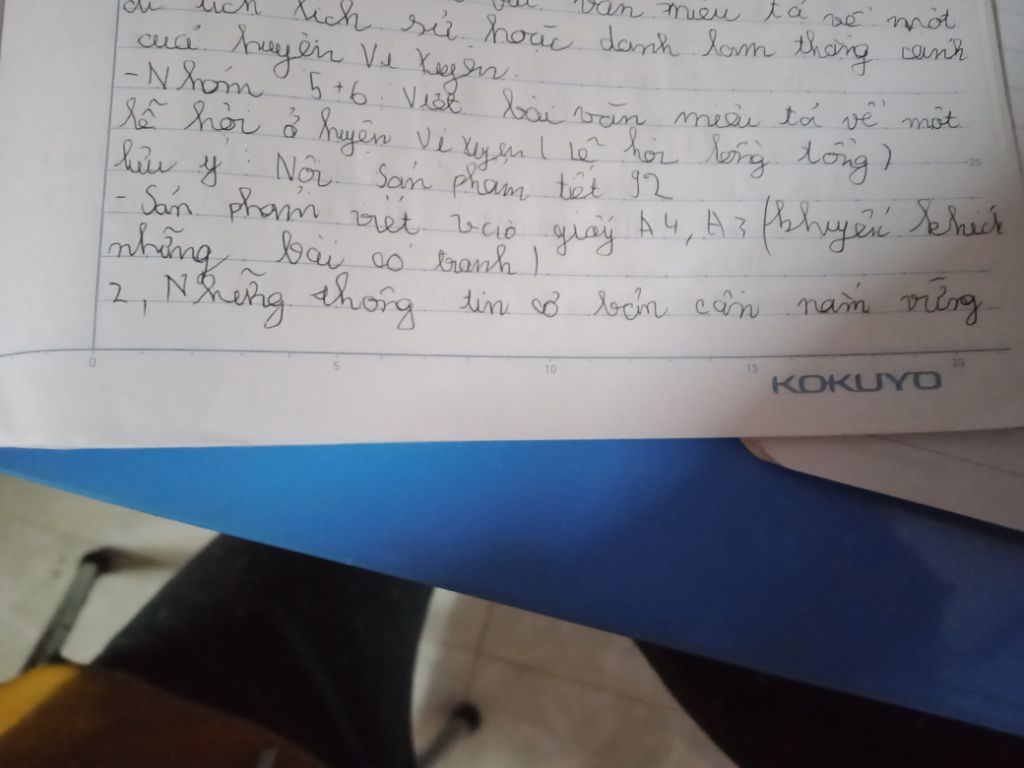 di tích lịch sử hoặc danh lam thắng cảnh
của huyện Vị Xuyên.
- Nhóm 5+6: Viết bài văn miêu tả về một
lễ hội ở huyện Vị Xuyên (lễ hội lồng tồng)
lưu ý: Nội sản phẩm tiết 92
- Sản phẩm viết vào giấy A4, A3 (khuyến khích
những bài có tranh)
2, Những thông tin cơ bản cần nắm vững
0 5 10 15 20
25
KOKUYO